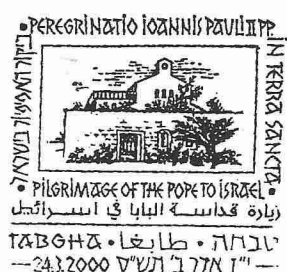 PEREGRINATIO IOANNIS PAULI II PP.
IN TERRA SANCTA
ביקור האפיפיור בישראל
PILGRIMAGE OF THE POPE TO ISRAEL
زيارة قداسة البابا في اسرائيل
TABGHA • طابغا • טבחה
24.3.2000 י"ז אדר ב' תש"ס